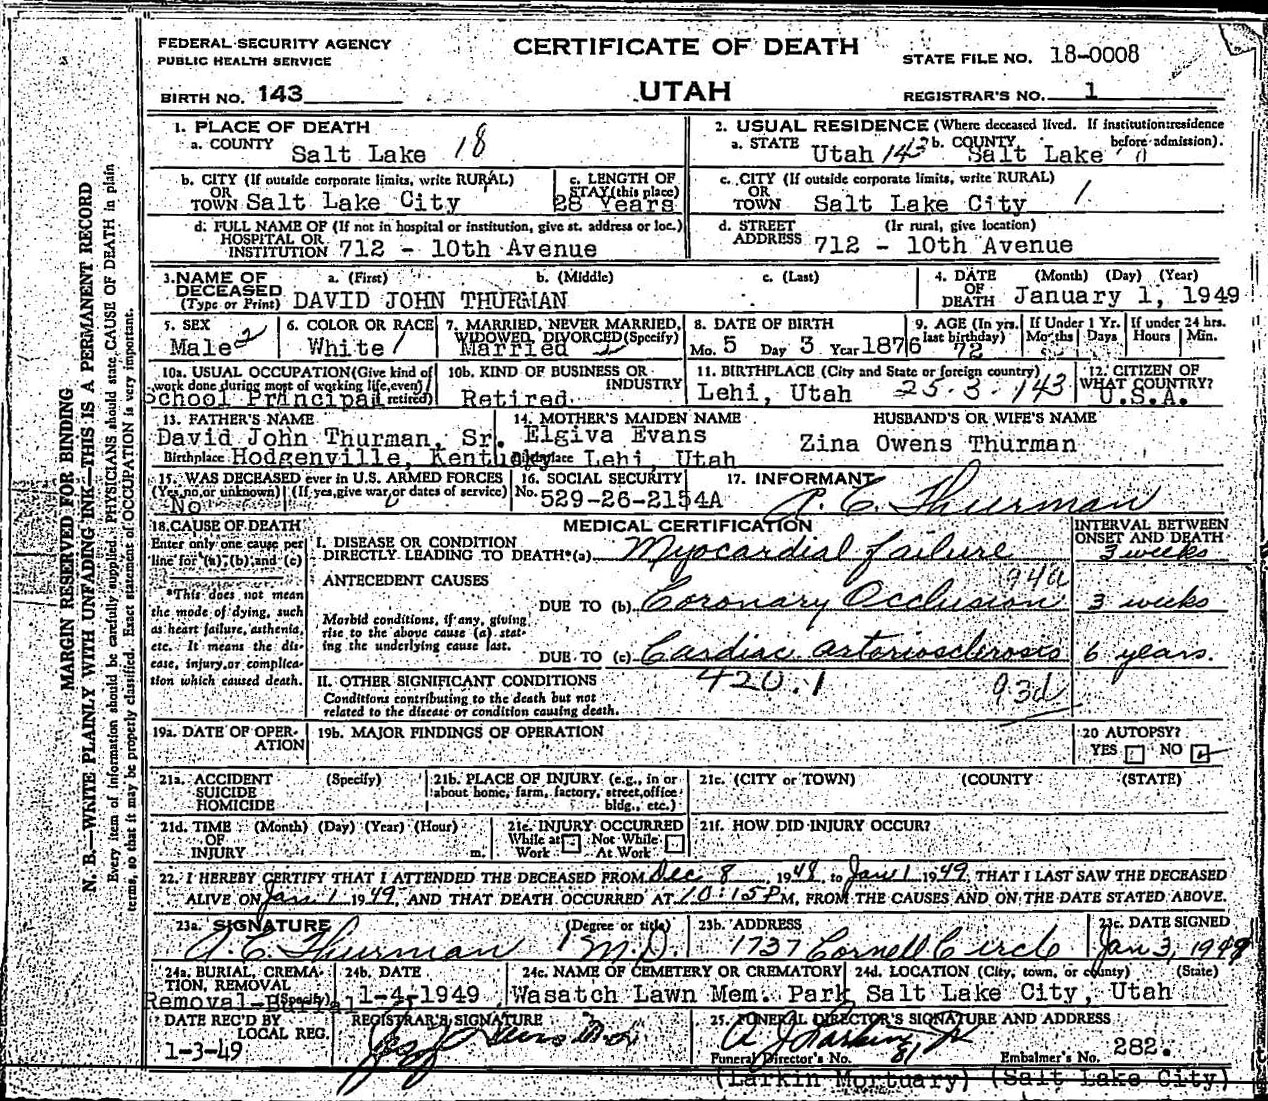 FEDERAL SECURITY AGENCY
PUBLIC HEALTH SERVICE
CERTIFICATE OF DEATH
STATE FILE NO. 18-0008
BIRTH NO. 143
UTAH
REGISTRAR'S NO. 1
1. PLACE OF DEATH
a. COUNTY Salt Lake 18
2. USUAL RESIDENCE (Where deceased lived. If institution: residence before admission).
a. STATE Utah 143 b. COUNTY Salt Lake
b. CITY (If outside corporate limits, write RURAL)
OR
TOWN Salt Lake City
c. LENGTH OF
STAY (this place)
28 Years
c. CITY (If outside corporate limits, write RURAL)
OR
TOWN Salt Lake City 1
d. FULL NAME OF (If not in hospital or institution, give st. address or loc.)
HOSPITAL OR
INSTITUTION 712 - 10th Avenue
d. STREET (If rural, give location)
ADDRESS 712 - 10th Avenue
3. NAME OF DECEASED (Type or Print)
a. (First) b. (Middle) c. (Last)
DAVID JOHN THURMAN
4. DATE OF DEATH (Month) (Day) (Year)
January 1, 1949
5. SEX
Male 2
6. COLOR OR RACE
White 1
7. MARRIED, NEVER MARRIED,
WIDOWED, DIVORCED (Specify)
Married 2
8. DATE OF BIRTH
Mo. 5 Day 3 Year 1876
9. AGE (In yrs. last birthday)
72
If Under 1 Yr.
Months Days
If under 24 hrs.
Hours Min.
10a. USUAL OCCUPATION (Give kind of
work done during most of working life, even
if retired)
School Principal
10b. KIND OF BUSINESS OR
INDUSTRY
Retired
11. BIRTHPLACE (City and State or foreign country)
Lehi, Utah 25-3-143
12. CITIZEN OF
WHAT COUNTRY?
U.S.A.
13. FATHER'S NAME
David John Thurman, Sr.
Birthplace Hodgenville, Kentucky
14. MOTHER'S MAIDEN NAME
Elgiva Evans
Birthplace Lehi, Utah
HUSBAND'S OR WIFE'S NAME
Zina Owens Thurman
15. WAS DECEASED ever in U.S. ARMED FORCES
(Yes, no, or unknown) (If yes, give war or dates of service)
No
16. SOCIAL SECURITY
No. 529-26-2154A
17. INFORMANT
A. C. Thurman
18. CAUSE OF DEATH
Enter only one cause per
line for (a), (b), and (c)
*This does not mean
the mode of dying, such
as heart failure, asthenia,
etc. It means the dis-
ease, injury, or complica-
tion which caused death.
MEDICAL CERTIFICATION
INTERVAL BETWEEN
ONSET AND DEATH
I. DISEASE OR CONDITION
DIRECTLY LEADING TO DEATH*(a) Myocardial failure 3 weeks
ANTECEDENT CAUSES 94a
DUE TO (b) Coronary Occlusion 3 weeks
Morbid conditions, if any, giving
rise to the above cause (a) stat-
ing the underlying cause last.
DUE TO (c) Cardiac astoriosclerosis 6 years.
II. OTHER SIGNIFICANT CONDITIONS 420.1 93d
Conditions contributing to the death but not
related to the disease or condition causing death.
19a. DATE OF OPER-
ATION
19b. MAJOR FINDINGS OF OPERATION
20 AUTOPSY?
YES NO
21a. ACCIDENT (Specify)
SUICIDE
HOMICIDE
21b. PLACE OF INJURY (e.g., in or
about home, farm, factory, street, office
bldg., etc.)
21c. (CITY or TOWN) (COUNTY) (STATE)
21d. TIME (Month) (Day) (Year) (Hour)
OF
INJURY m.
21e. INJURY OCCURRED
While at Not While
Work At Work
21f. HOW DID INJURY OCCUR?
22. I HEREBY CERTIFY THAT I ATTENDED THE DECEASED FROM Dec 8, 1948, to Jan 1 1949, THAT I LAST SAW THE DECEASED
ALIVE ON Jan 1 1949, AND THAT DEATH OCCURRED AT 10:15 P M, FROM THE CAUSES AND ON THE DATE STATED ABOVE.
23a. SIGNATURE (Degree or title)
A. C. Thurman M.D.
23b. ADDRESS
1737 Cornell Circle
23c. DATE SIGNED
Jan 3, 1949
24a. BURIAL, CREMA-
TION, REMOVAL
(Specify)
Removal-Burial
24b. DATE
1-4-1949
24c. NAME OF CEMETERY OR CREMATORY
Wasatch Lawn Mem. Park
24d. LOCATION (City, town, or county) (State)
Salt Lake City, Utah
DATE REC'D BY
LOCAL REG.
1-3-49
REGISTRAR'S SIGNATURE
25. FUNERAL DIRECTOR'S SIGNATURE AND ADDRESS
A J Larkin Jr
Funeral Director's No. 81 Embalmer's No. 282.
(Larkin Mortuary) (Salt Lake City)
MARGIN RESERVED FOR BINDING
N. B.—WRITE PLAINLY WITH UNFADING INK—THIS IS A PERMANENT RECORD
Every item of information should be carefully supplied. PHYSICIANS should state CAUSE OF DEATH in plain
terms, so that it may be properly classified. Exact statement of OCCUPATION is very important.